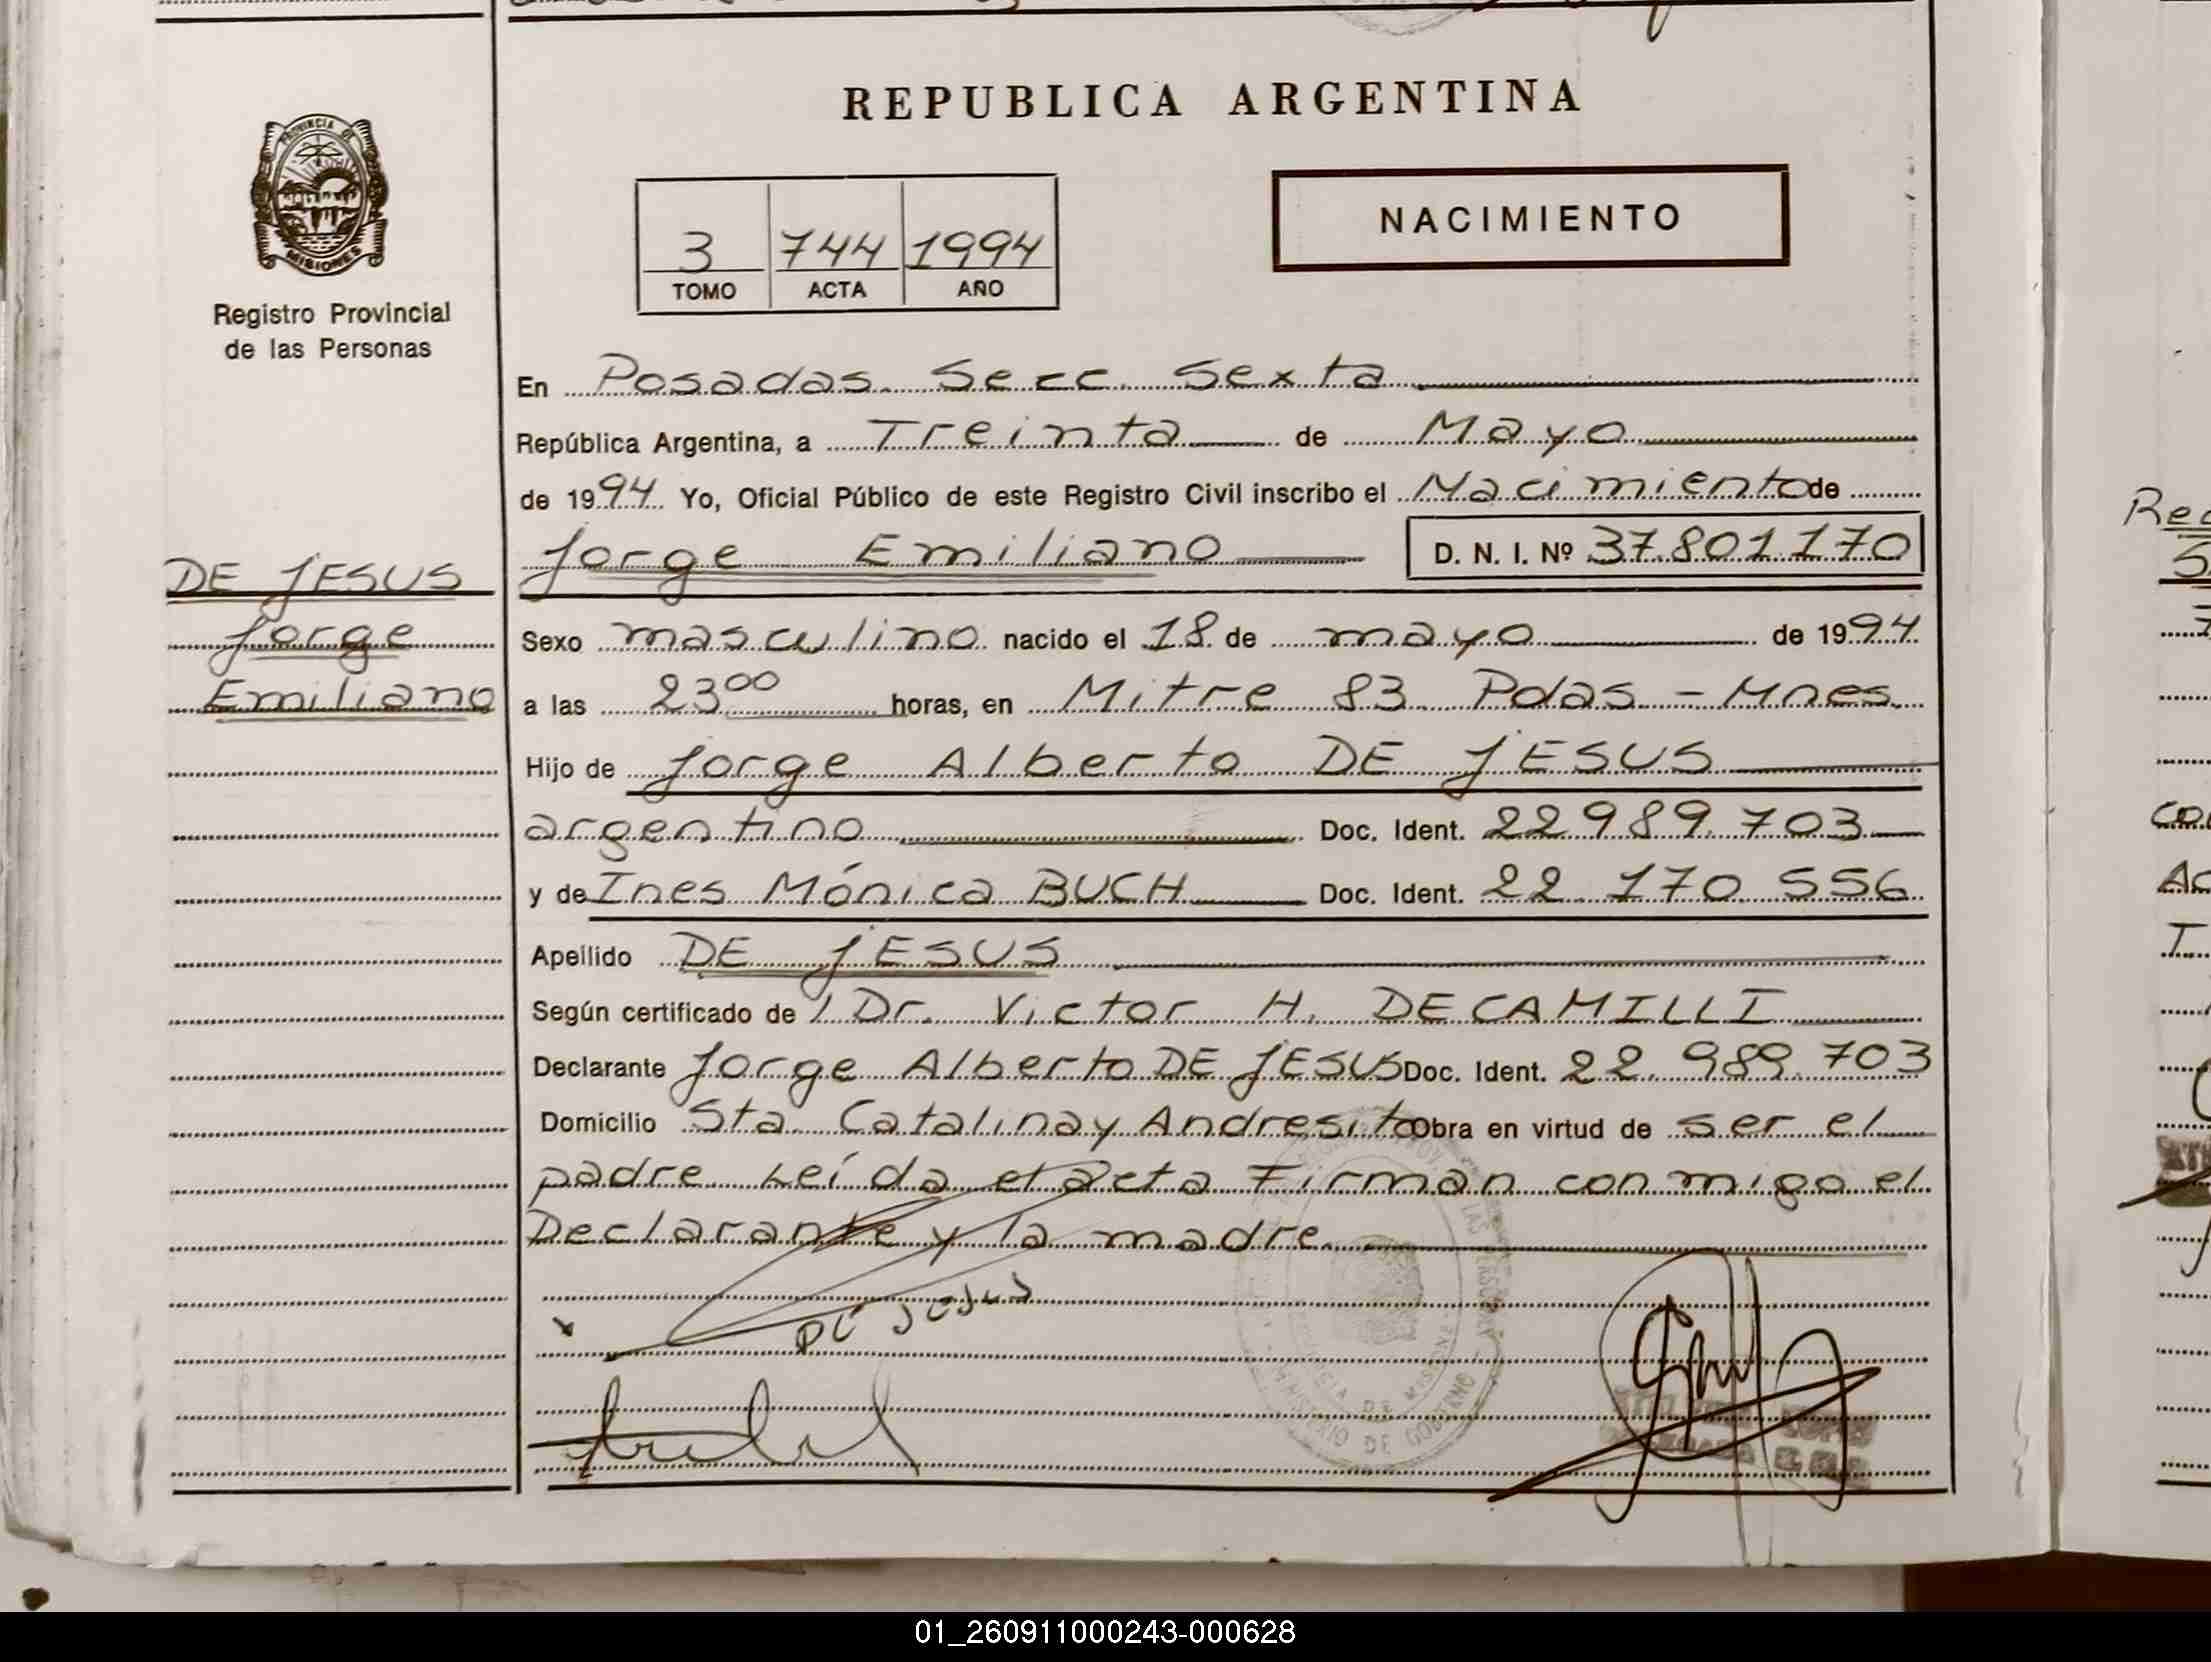 REPUBLICA ARGENTINA
PROVINCIA DE
MISIONES
Registro Provincial
de las Personas
NACIMIENTO
3 744 1994
TOMO ACTA AÑO
En Posadas Secc. Sexta
República Argentina, a Treinta de Mayo
de 1994. Yo, Oficial Público de este Registro Civil inscribo el Nacimiento de
Jorge Emiliano D. N. I. Nº 37.801.170
DE JESUS
Jorge
Emiliano
Sexo masculino nacido el 18 de mayo de 1994
a las 23 00 horas, en Mitre 83 Pdas - Mnes.
Hijo de Jorge Alberto DE JESUS
argentino Doc. Ident. 22.989.703
y de Ines Mónica BUCH Doc. Ident. 22.170.556
Apellido DE JESUS
Según certificado de / Dr. Victor H. DECAMILLI
Declarante Jorge Alberto DE JESUS Doc. Ident. 22.989.703
Domicilio Sta. Catalina y Andresito Obra en virtud de ser el
padre Leída el acta Firman conmigo el
Declarante y la madre.
De Jesus
MINISTERIO DE GOBIERNO
PROVINCIA DE MISIONES
LOPEZ
01_260911000243-000628